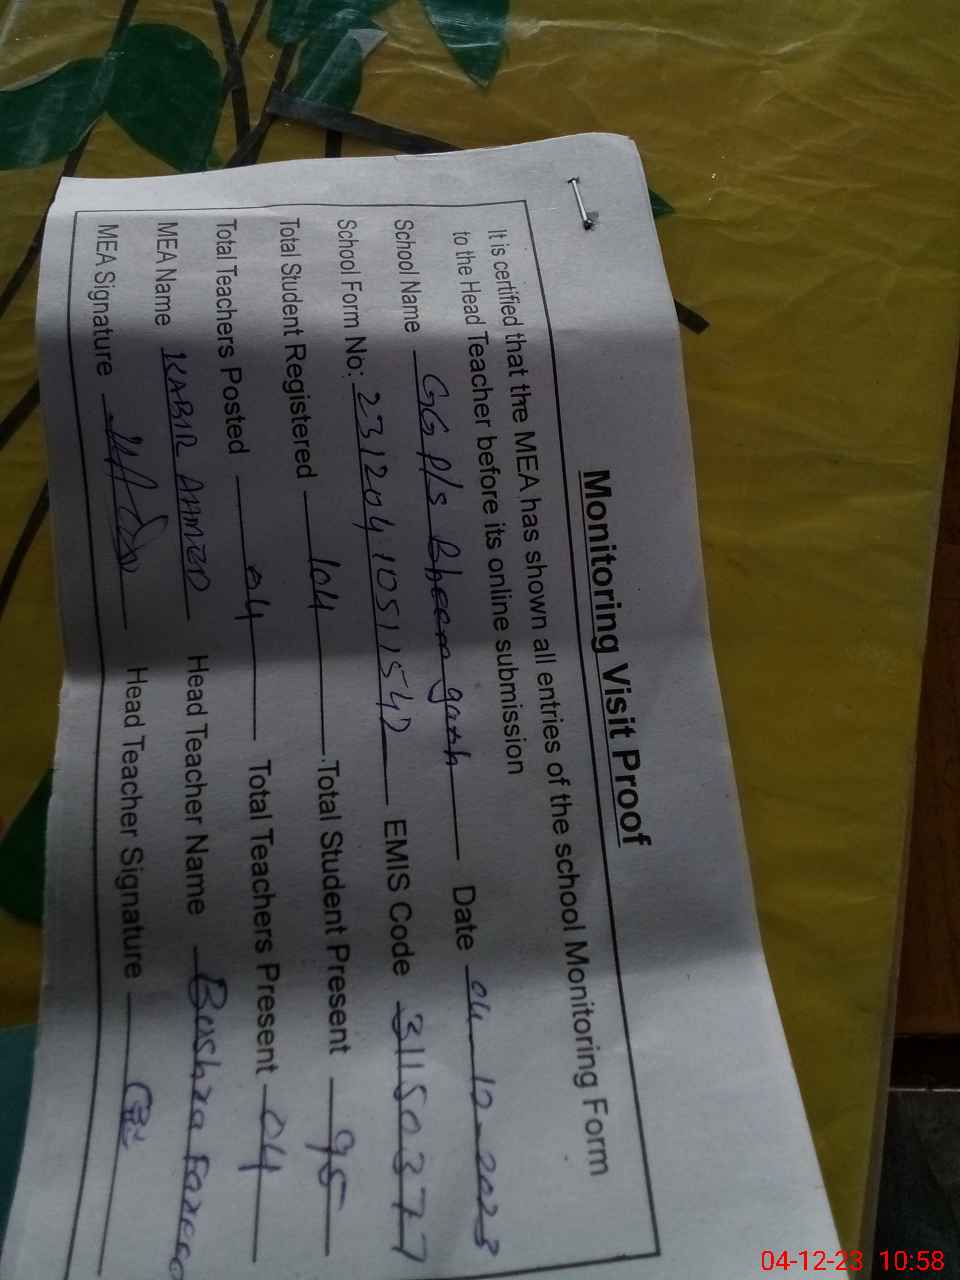 Monitoring Visit Proof
It is certified that the MEA has shown all entries of the school Monitoring Form
to the Head Teacher before its online submission
School Name GGP/S Bheem garh Date 04-12-2023
School Form No: 23120410511542 EMIS Code 31150377
Total Student Registered 104 Total Student Present 95
Total Teachers Posted 04 Total Teachers Present 04
MEA Name KABIR AHMED Head Teacher Name Bushra
MEA Signature Head Teacher Signature
04-12-23 10:58